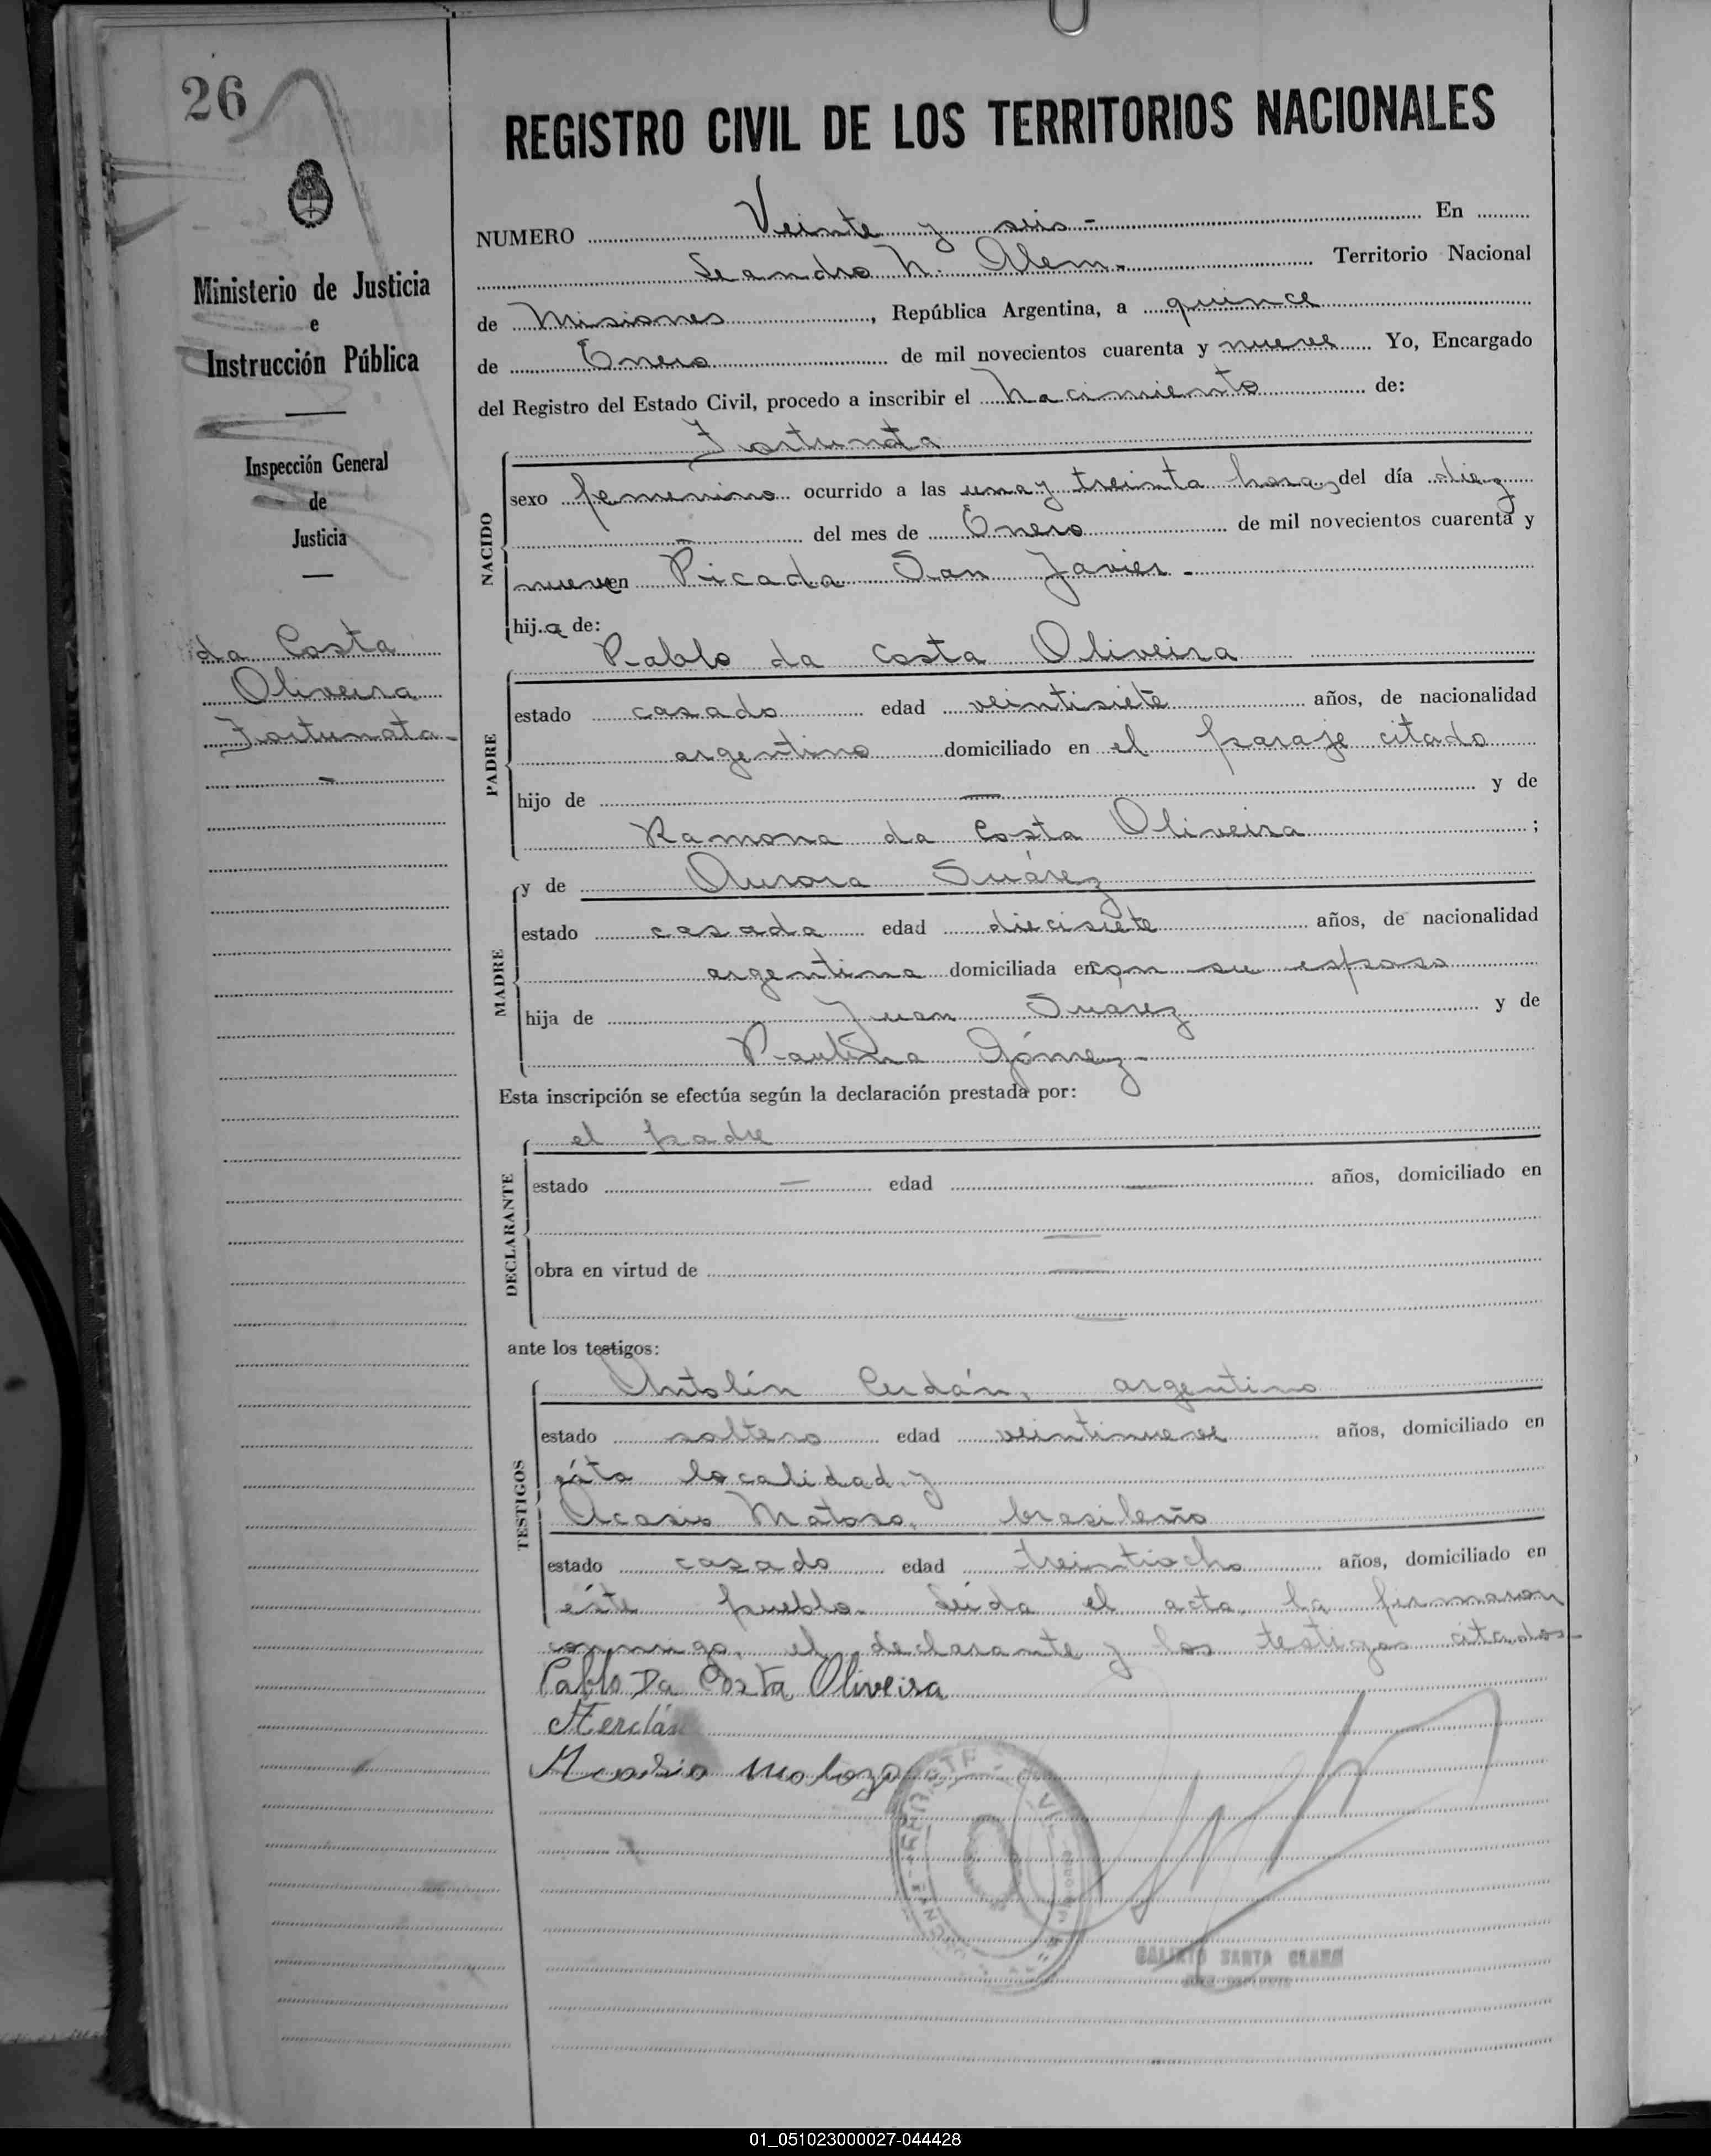 26
REGISTRO CIVIL DE LOS TERRITORIOS NACIONALES
Ministerio de Justicia
e
Instrucción Pública
Inspección General
de
Justicia
da Costa
Oliveira
Fortunata-
NUMERO Veinte y seis- En
Leandro N. Alem. Territorio Nacional
de Misiones, República Argentina, a quince
de Enero de mil novecientos cuarenta y nueve Yo, Encargado
del Registro del Estado Civil, procedo a inscribir el Nacimiento de:
Fortunata
NACIDO
sexo femenino ocurrido a las una y treinta horas del día diez
- del mes de Enero de mil novecientos cuarenta y
nueve en Picada San Javier-
hija de:
Pablo da Costa Oliveira
PADRE
estado casado edad veintisiete años, de nacionalidad
argentino domiciliado en el paraje citado
hijo de — y de
Ramona da Costa Oliveira;
y de Aurora Suárez
MADRE
estado casada edad diecisiete años, de nacionalidad
argentina domiciliada en con su esposo
hija de Juan Suarez y de
Paulina Gómez-
Esta inscripción se efectúa según la declaración prestada por:
el padre
DECLARANTE
estado — edad — años, domiciliado en
—
obra en virtud de —
—
ante los testigos:
TESTIGOS
Antolín Cerdán, argentino
estado soltero edad veintinueve años, domiciliado en
ésta localidad y
Acasio Matoso, brasileño
estado casado edad treintiocho años, domiciliado en
éste pueblo. Leída el acta, la firmaron
conmigo, el declarante y los testigos citados-
Pablo Da Costa Oliveira
Acasio Matozo
SANTA CLARA
01_051023000027-044428